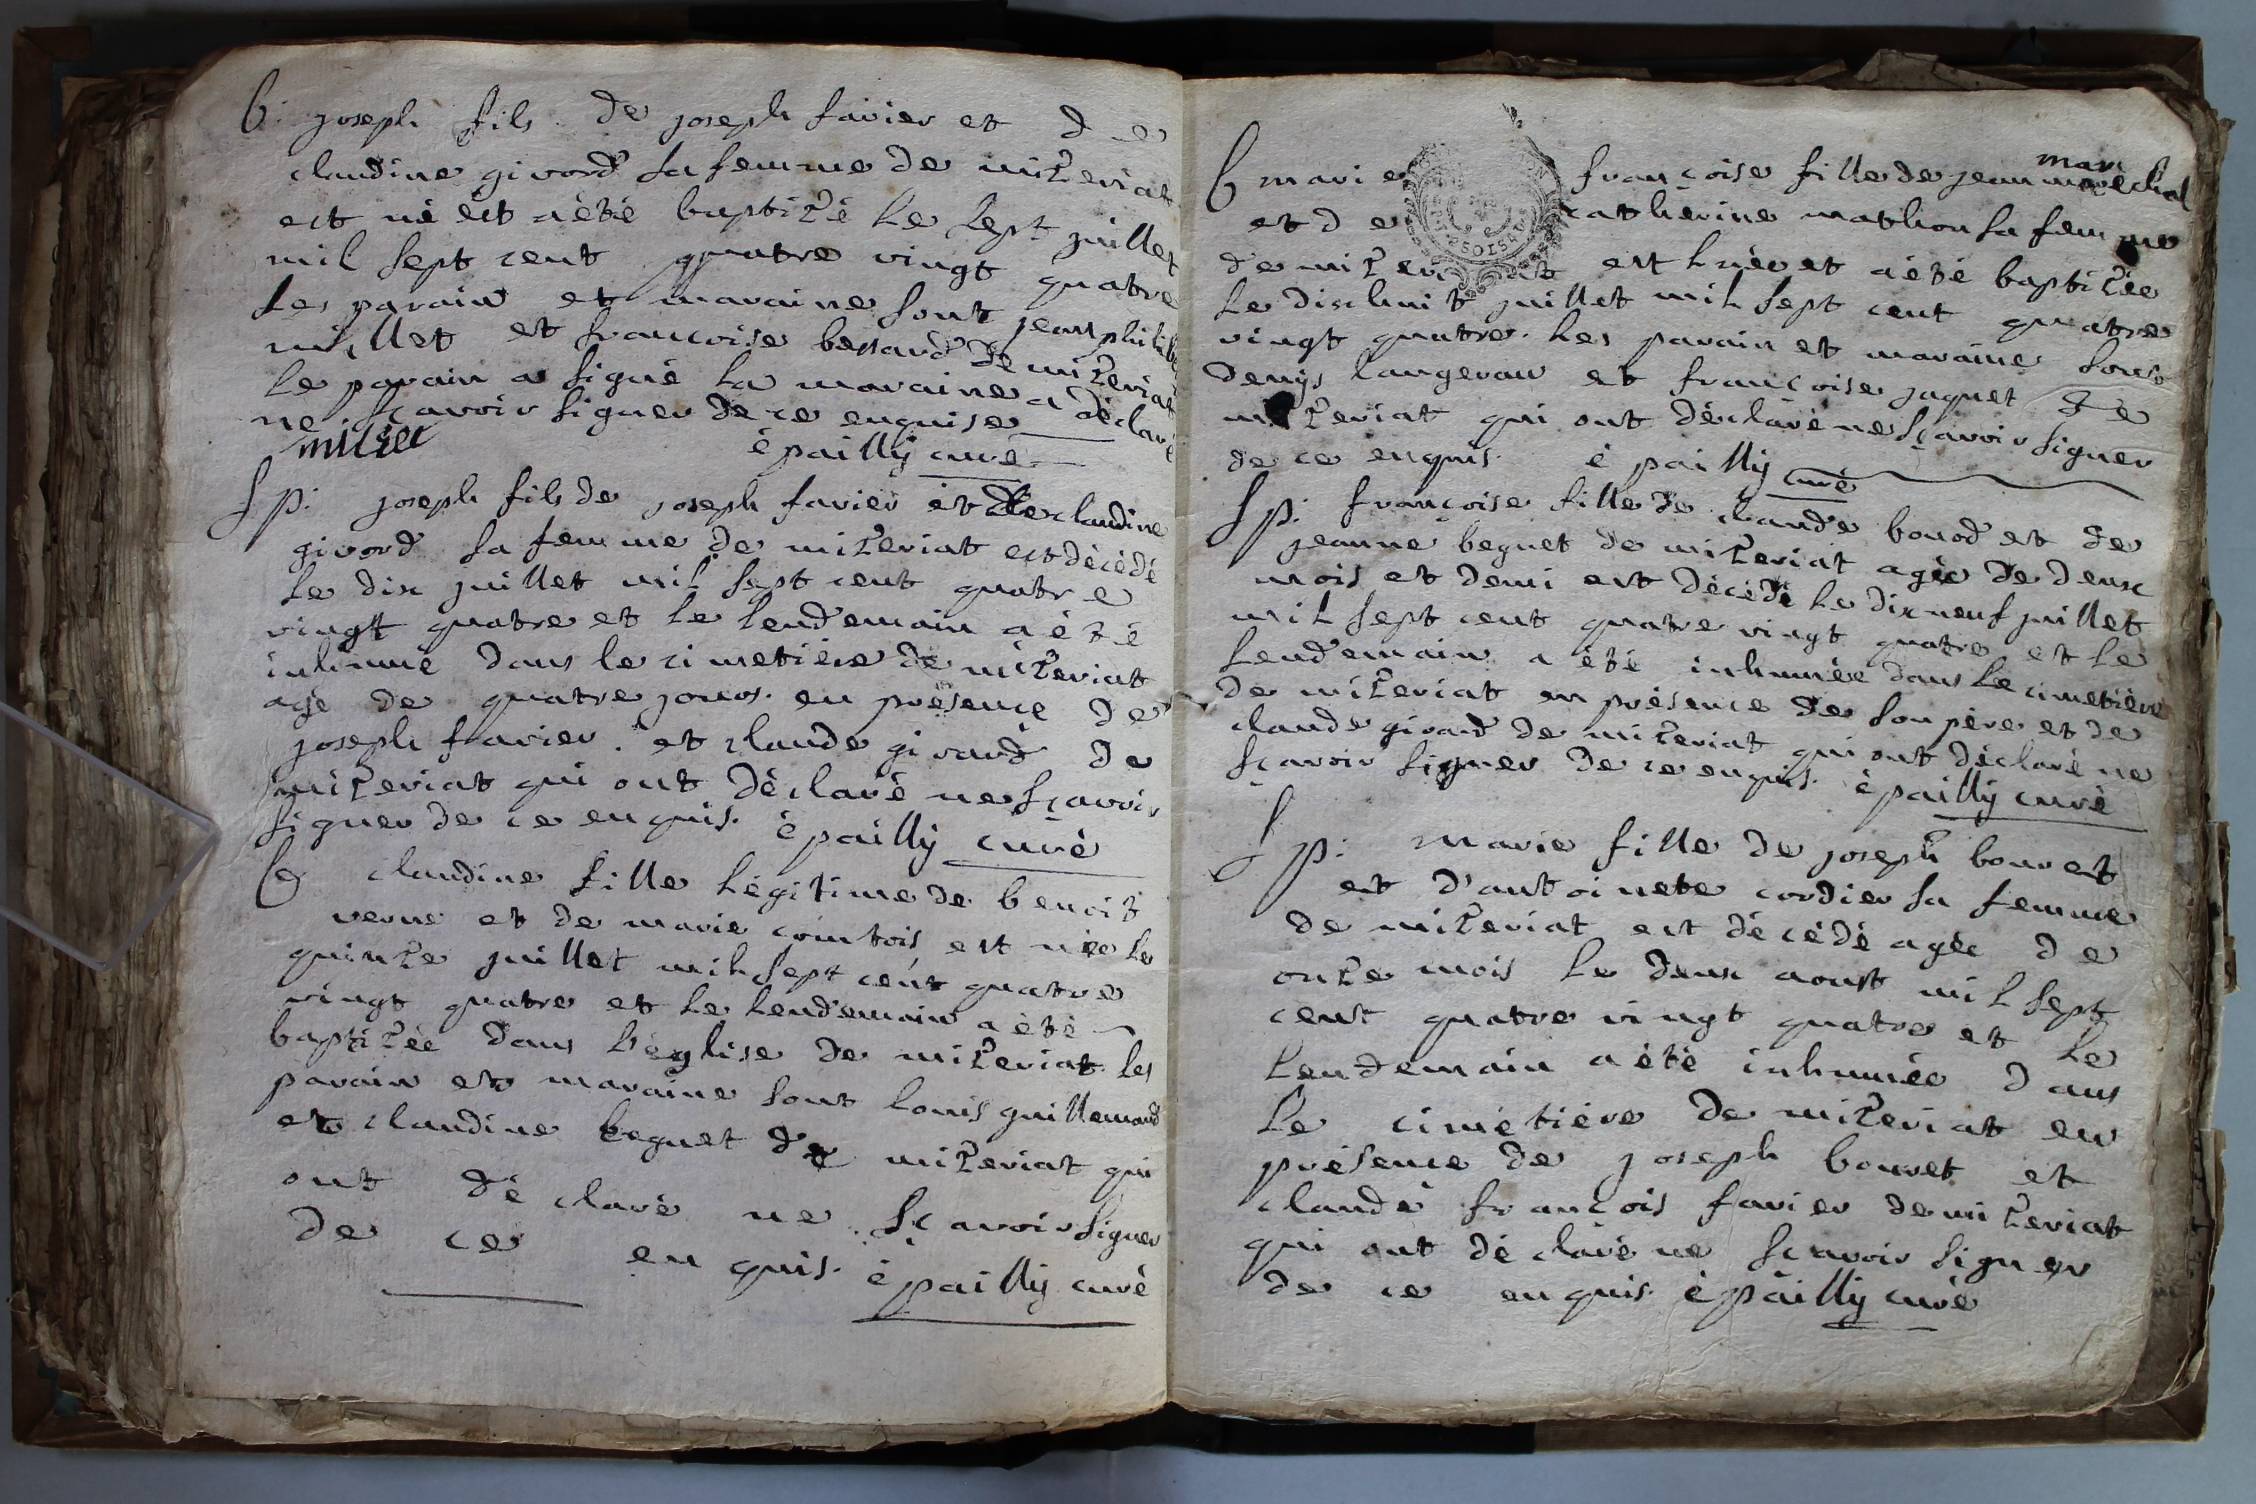 b. joseph fils de joseph favier et de
claudine givord sa femme de mizeriat
est né et a été baptizé le sept juillet
mil sept cent quatre vingt quatre
les parain et maraine sont jean philib
millet et francoise bessard de mizeriat
le parain a signé la maraine a déclaré
ne sçavoir signer de ce enquise
millet épailly curé
Sp. joseph fils de joseph favier et de claudine
givord sa femme de mizeriat est décédé
le dix juillet mil sept cent quatre
vingt quatre et le lendemain a été
inhumé dans le cimetière de mizeriat
agé de quatre jours. en présence de
joseph favier. et claude givard de
mizeriat qui ont déclaré ne sçavoir
signer de ce enquis. épailly curé
b claudine fille légitime de benoit
verne et de marie cointois est née le
quinze juillet mil sept cent quatre
vingt quatre et le lendemain a été
baptizée dans l'église de mizeriat. les
parain et maraine sont louis guillemaud
et claudine beguet de mizeriat qui
ont déclaré ne sçavoir signer
de ce enquis. épailly curé
b marie françoise fille de jean marechal
et de catherine mathon sa femme
de mizeriat est née et a été baptizée
le dixhuit juillet mil sept cent quatre
vingt quatre. les parain et maraine sont
denys langeran et françoise jaquet de
mizeriat qui ont déclaré ne sçavoir signer
de ce enquis. épailly curé
Sp. françoise fille de claude bovod et de
jeanne beguet de mizeriat agée de deux
mois et demi est décédé le dix neuf juillet
mil sept cent quatre vingt quatre et le
lendemain a été inhumée dans le cimetière
de mizeriat en présence de son père et de
claude givard de mizeriat qui ont déclaré ne
sçavoir signer de ce enquis. épailly curé
Sp. marie fille de joseph bouvet
et d'antoinete cordier sa femme
de mizeriat est décédé agée de
onze mois le deux aoust mil sept
cent quatre vingt quatre et le
lendemain a été inhumée dans
le cimétiére de mizeriat en
présence de joseph bouvet et
claude françois favier de mizeriat
qui ont déclaré ne sçavoir signer
de ce enquis. épailly curé